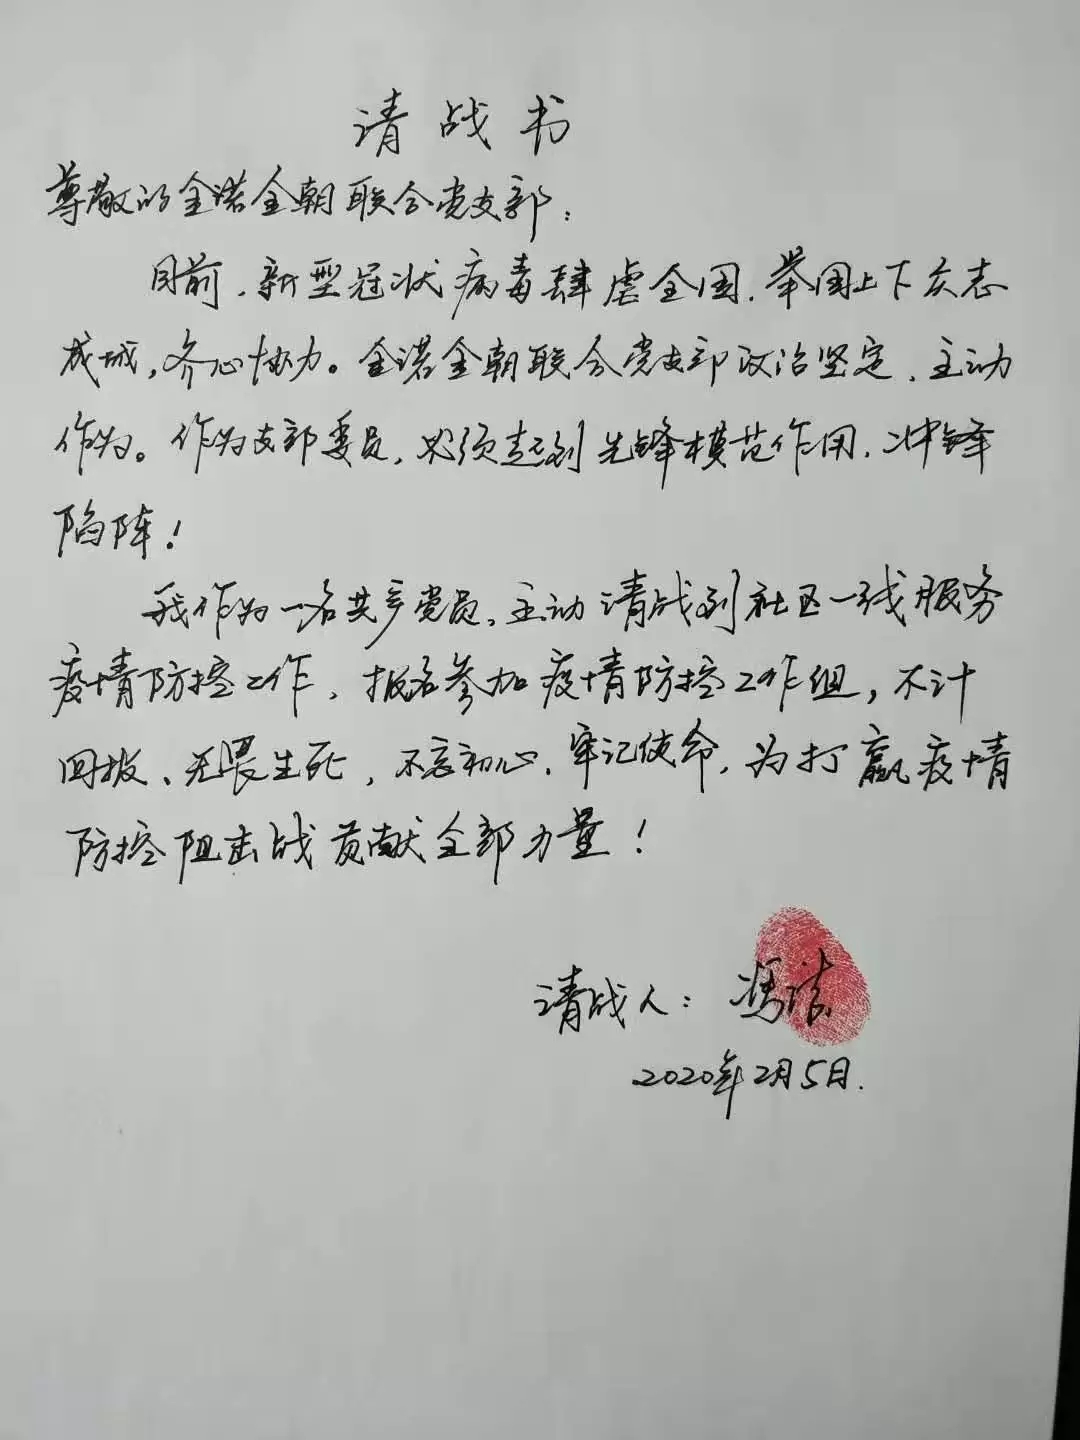 请战书
尊敬的金诺金朝联合党支部：
目前，新型冠状病毒肆虐全国，举国上下众志
成城，齐心协力。金诺金朝联合党支部政治坚定，主动
作为。作为支部委员，必须起到先锋模范作用，冲锋
陷阵！
我作为一名共产党员，主动请战到社区一线服务
疫情防控工作，报名参加疫情防控工作组，不计
回报、无畏生死，不忘初心，牢记使命，为打赢疫情
防控阻击战贡献全部力量！
请战人：冯洁
2020年2月5日.